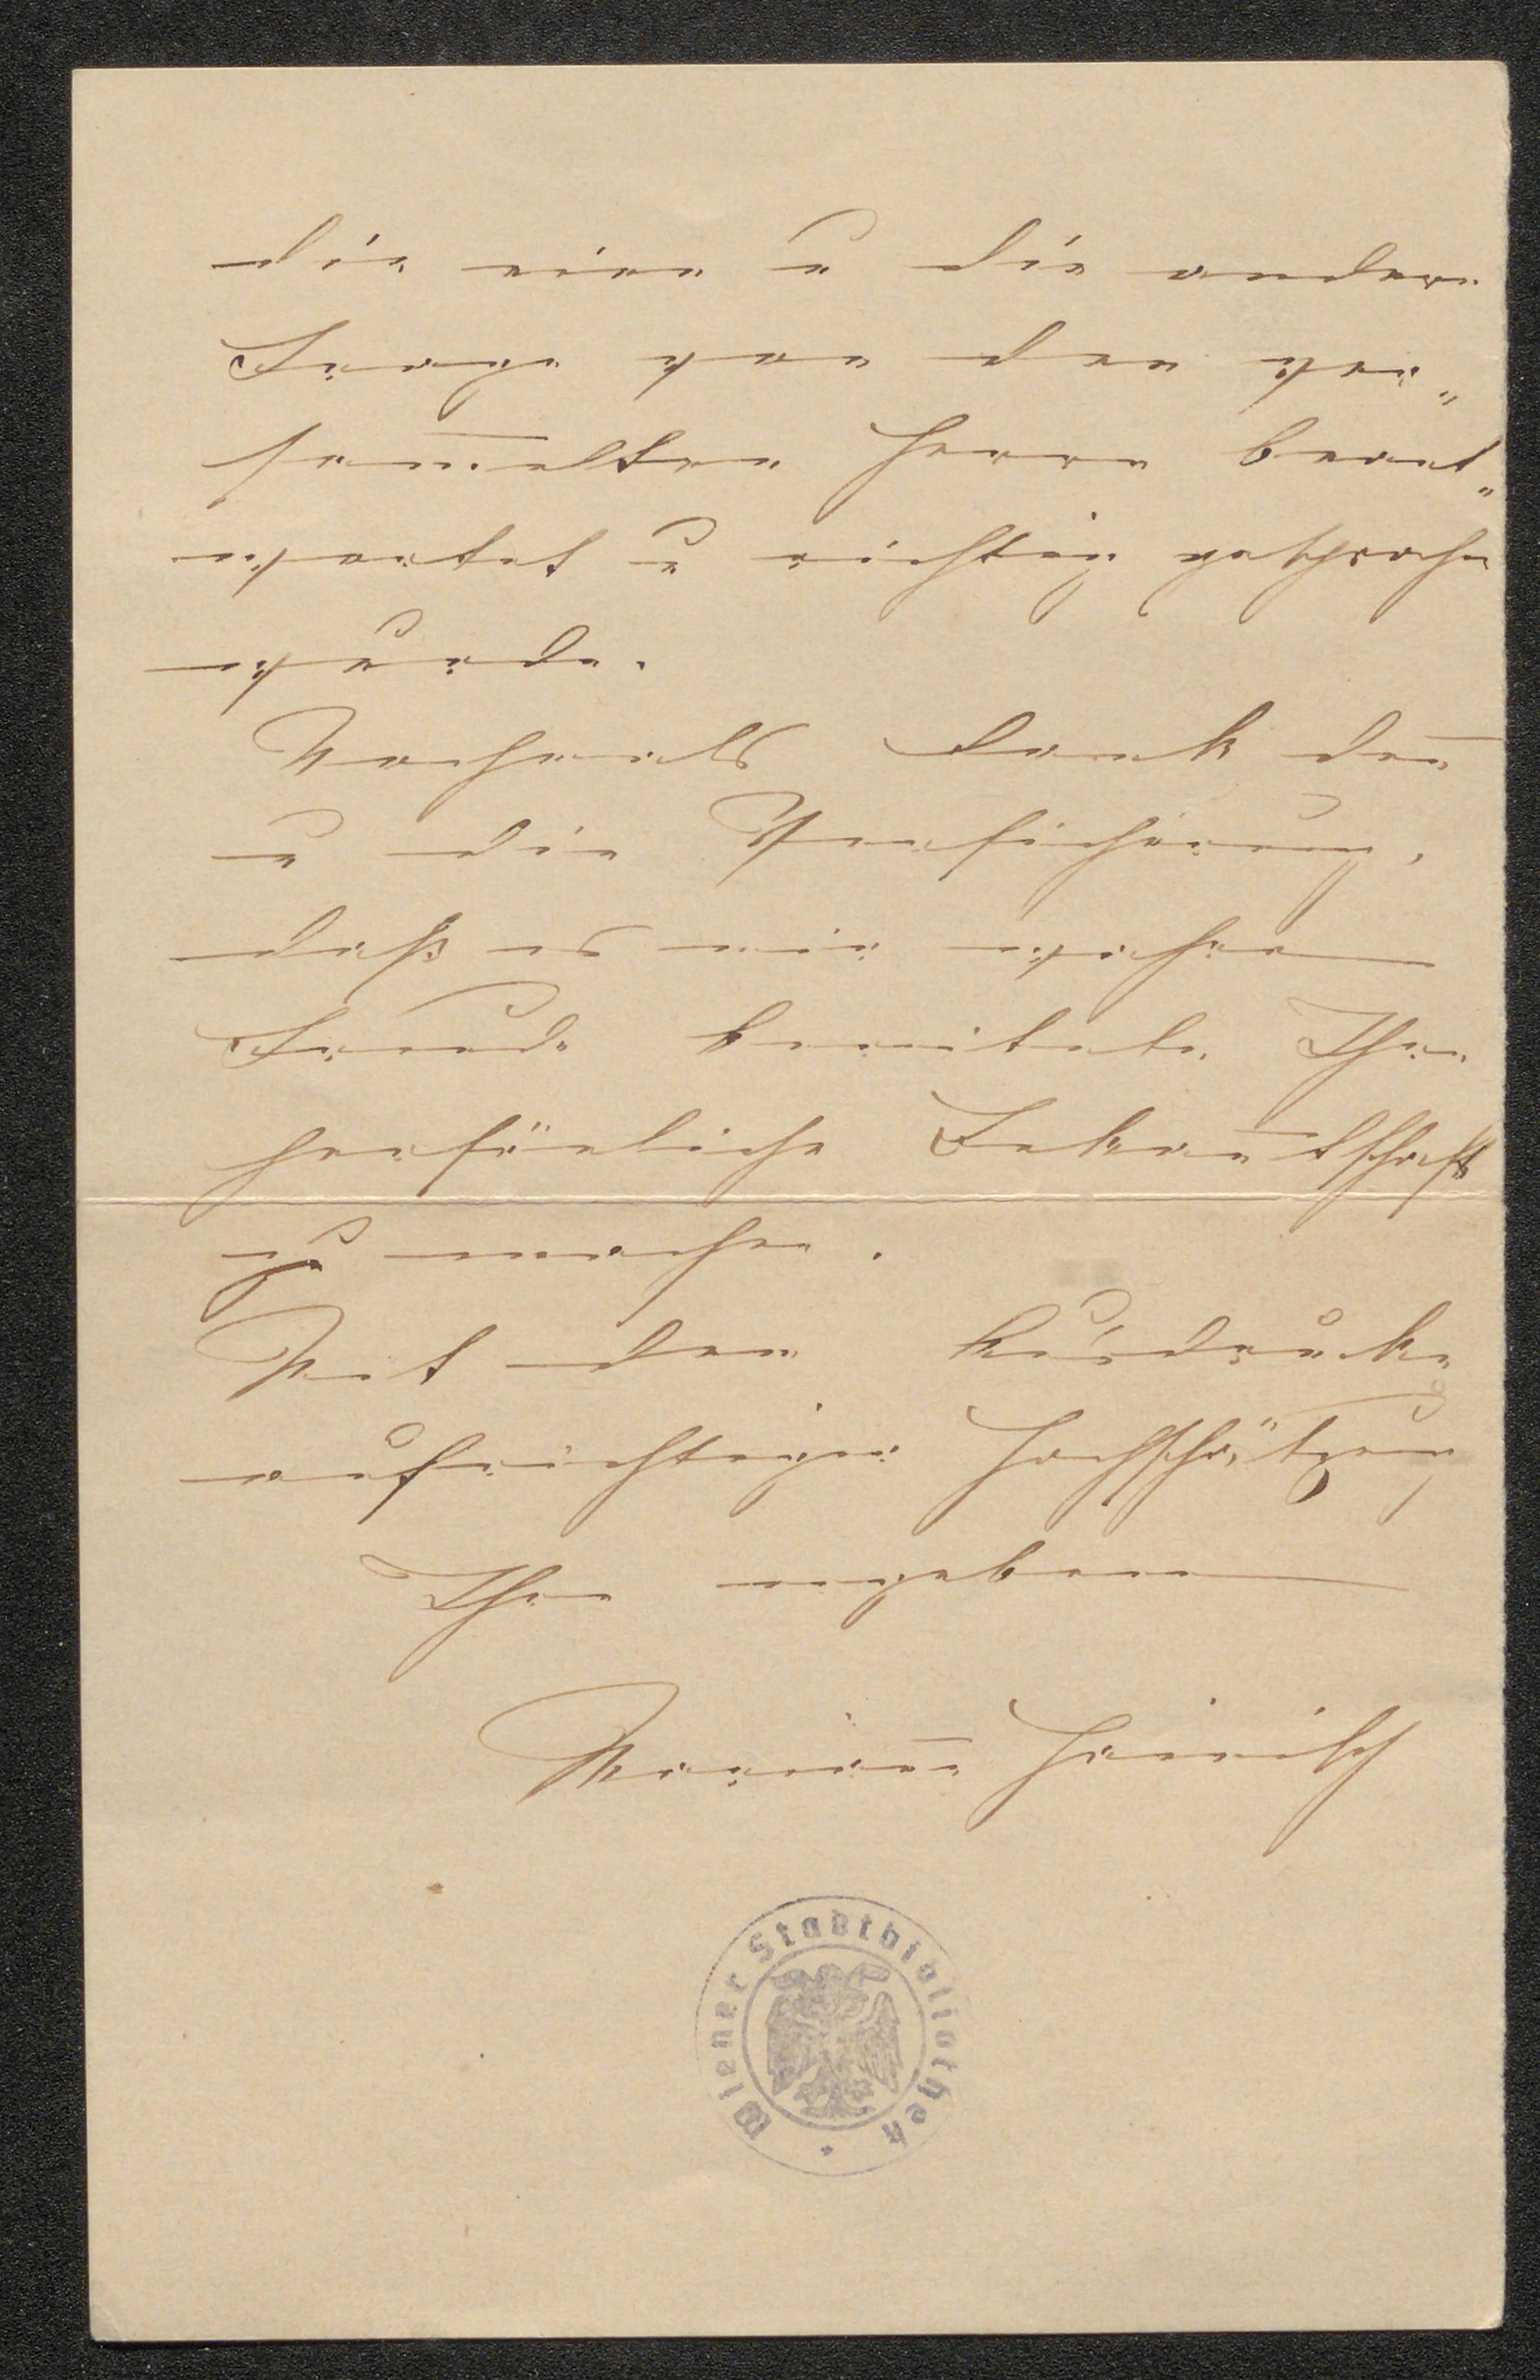 die eine u die andere
Frage von den ver„
sam̅elten Herren beant„
wortet u richtig gesprochen
wurde.
Nochmals Dank den̅
u die Versicherung,
daß es mir wahre
Freude bereitete Ihre
persönliche Bekan̅tschaft
zu machen.
Mit dem Ausdrucke
aufrichtiger Hochschätzung
Ihre ergebene
Marian̅e Hainisch
Wiener Stadtbibliothek